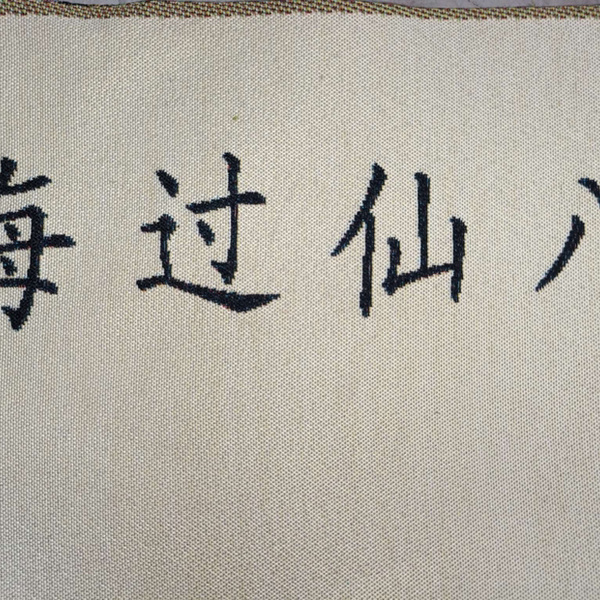 八仙过海